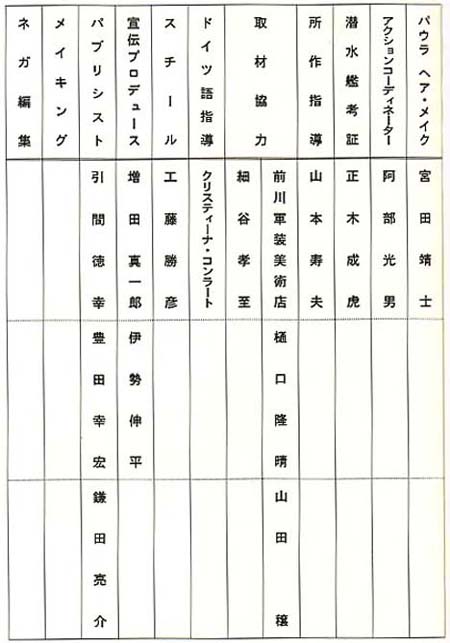 パウラ ヘア・メイク
宮田靖士
アクションコーディネーター
阿部光男
潜水艦考証
正木成虎
所作指導
山本寿夫
取材協力
前川軍装美術店
樋口隆晴
山田穣
細谷孝至
ドイツ語指導
クリスティーナ・コンラート
スチール
工藤勝彦
宣伝プロデュース
増田真一郎
伊勢伸平
パブリシスト
引間徳幸
豊田幸宏
鎌田亮介
メイキング
ネガ編集